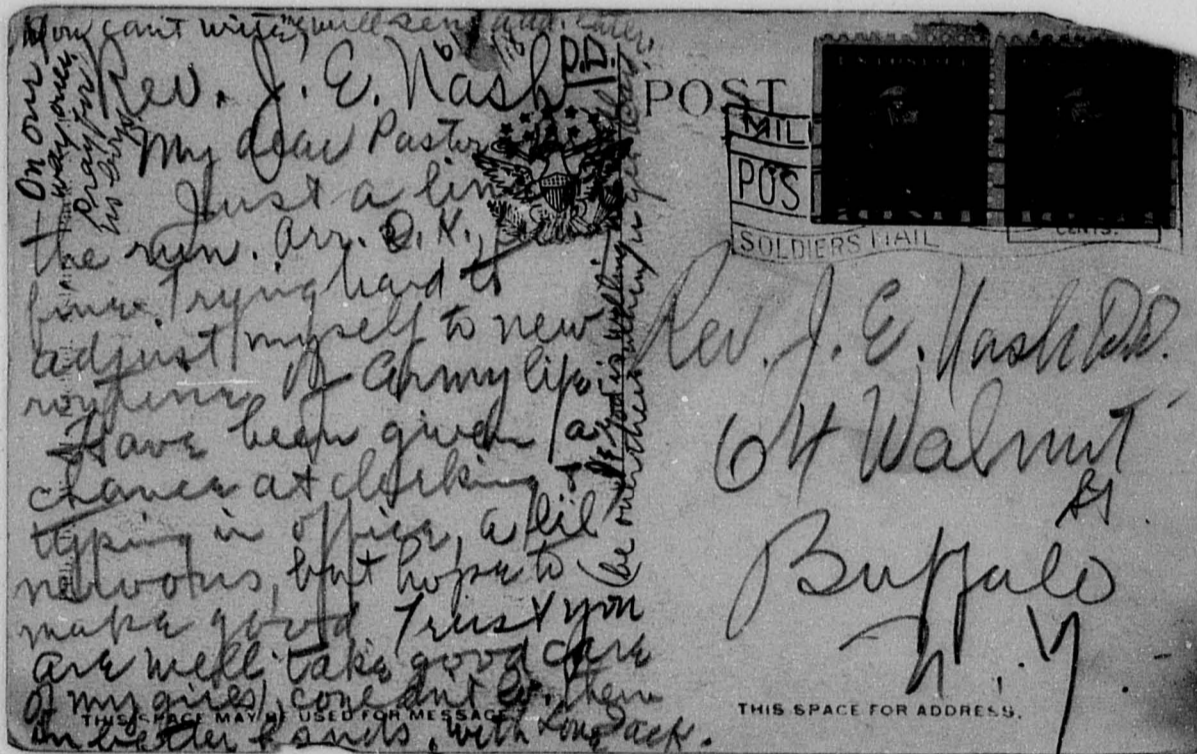 You can't write, will send add. later.
Rev. J. E. Nash D.D.
My dear Pastor
Just a line
the run. Arr. O.K.,
fine. Trying hard to
adjust myself to new
routine of Army life.
Have been given a
chance at clerking &
typing in office, a lil
nervous, but hope to
make good. Trust you
are well. take good care
of my girls, them
in better hands, with love Jack.
On our
way over,
Pray for
us boys
THIS SPACE MAY BE USED FOR MESSAGE
POST
MIL
POS
SOLDIERS MAIL
CENTS.
Rev. J. E. Nash D.D.
64 Walnut
St.
Buffalo
N.Y.
THIS SPACE FOR ADDRESS.